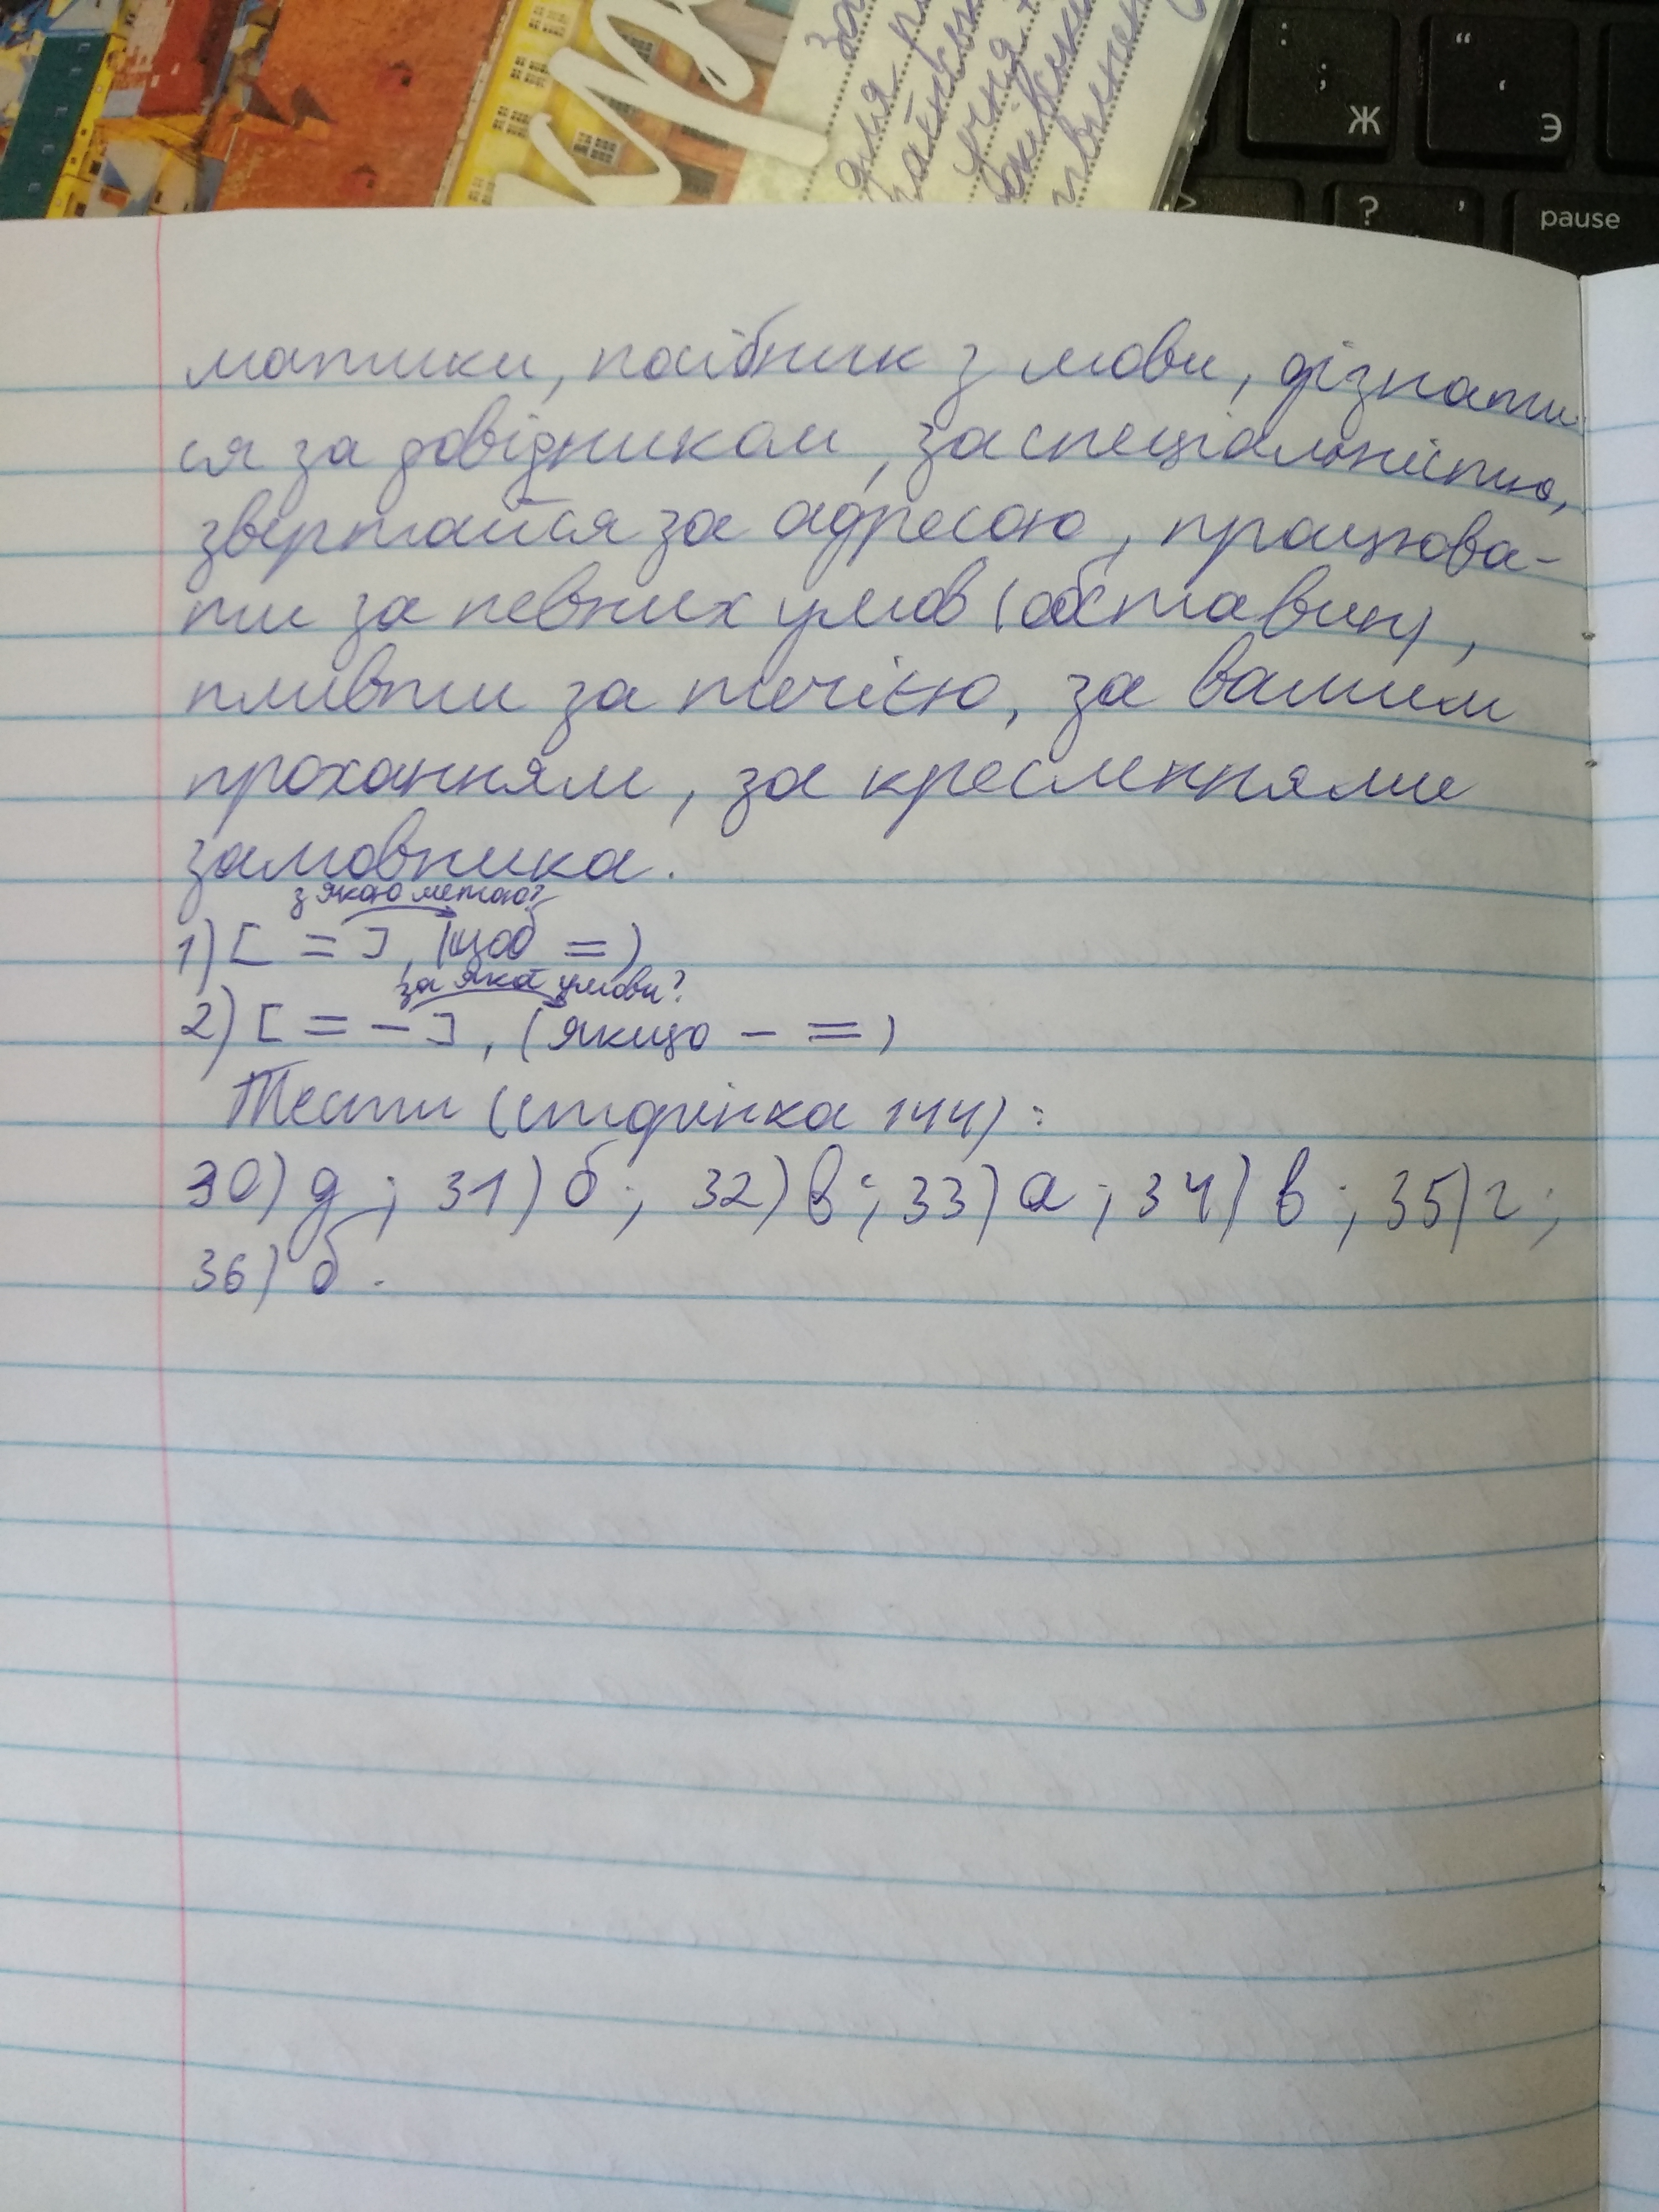 кра
; Ж
" ' Э
? ,
pause
матики, посібник з мови, дізнати
ся за довідником, за спеціальністю,
звертайся за адресою, працюва-
ти за певних умов (обставин),
пливти за течією, за вашим
проханням, за кресленнями
замовника.
з якою метою?
1) [ = ], (щоб = )
за якої умови?
2) [ = - ], (якщо - = )
Тести (сторінка 144):
30) д; 31) б; 32) в; 33) а; 34) в; 35) г;
36) б.